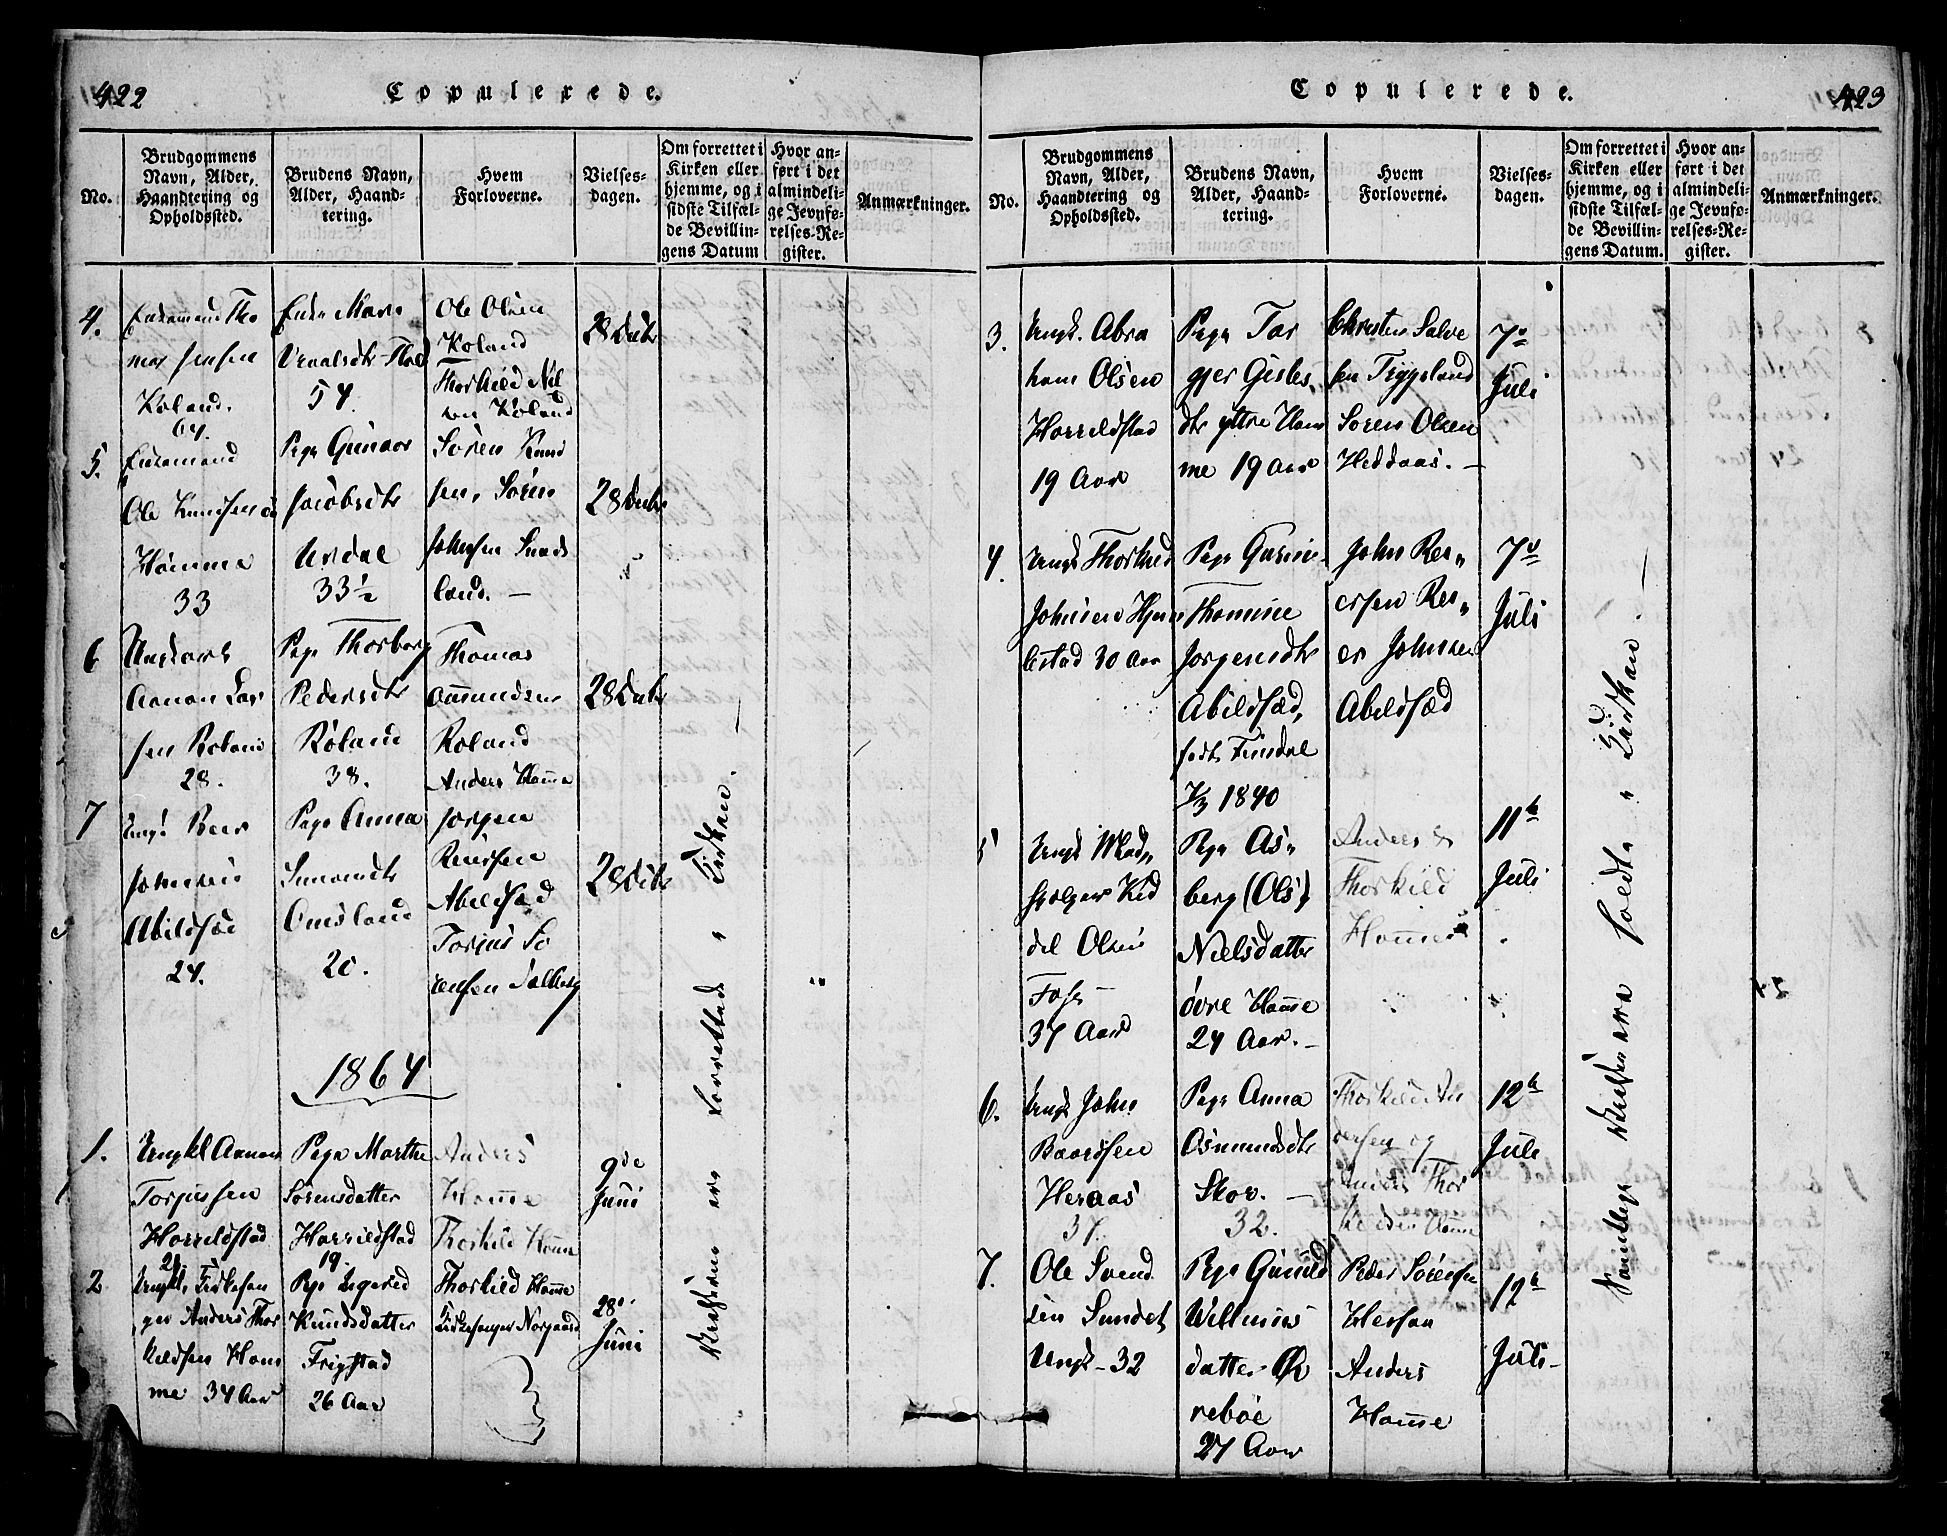 422
Copulerede.
No.
Brudgommens
Navn, Alder,
Haandtering og
Opholdssted.
Brudens Navn,
Alder, Haand-
tering.
Hvem
Forloverne.
Vielses-
dagen.
Om forrettet i
Kirken eller
hjemme, og i
sidste Tilfæl-
de Bevillin-
gens Datum
Hvor an-
ført i det
almindeli-
ge Jevnfø-
relses-Re-
gister.
Anmærkninger.
4.
Enkemand Tho
mas Jensen
Koland.
64.
Enke Maren
54.
Ole Olsen
Koland
Thorkild Nil
sen Koland
28 Decbr
5.
Enkemand
Ole Knudsen
Homme
33
Pige Gunvor
Jacobsdtr
Urdal
33½
Sören Knud
sen, Sören
Johnsen
land. –
28 Decbr
6
Ungkarl
Aanon Lar
sen Roland
28.
Pige Thorborg
Pedersdtr
Röland
38.
Thomas
Aamundsen
Roland
Anders Homme
28 Decbr
7
Ungk. Reer
Johnsen
Abildsæd
24.
Pige Anna
Simonsdtr
Omsland
20.
Jörgen
Reersen
Abildsæd
Torjus Sö
rensen Solberg
28 Decbr
1864
1.
Ungkl Aanon
Torjussen
Horrildstad
21.
Pige Marthe
Sörensdatter
Horrildstad
19.
Anders
Homme
Thorkild Homme
9de
Juni
2
Ungkl. Kirkesan
ger Anders Thor
kildsen Hom
me 34 Aar
Pige Sigrid
Knudsdatter
Frigstad
26 Aar
Thorkild Homme
Kirkesanger Norgaard
28de
Juni
forrettede i Kirken. –
423
Copulerede.
No.
Brudgommens
Navn, Alder,
Haandtering og
Opholdssted.
Brudens Navn,
Alder, Haand-
tering.
Hvem
Forloverne.
Vielses-
dagen.
Om forrettet i
Kirken eller
hjemme, og i
sidste Tilfæl-
de Bevillin-
gens Datum.
Hvor an-
ført i det
almindeli-
ge Jevnfø-
relses-Re-
gister.
Anmærkninger.
3.
Ungk. Abra
ham Olsen
Horrildstad
19 Aar
Pige Tor
gjer Gisles
dtr yttre Hom
me 19 Aar
Christen Salve
sen Trygsland
Sören Olsen
Heddaas. –
7de
Juli
4.
Ungk Thorkild
Johnsen
30 Aar
Pige Gurine
Thomine
Jörgensdtr
Abildsæd,
födt Finsdal
1840
John Reer
ersen Ree
er Johnsen
Abildsæd
7de
Juli
5
Ungk
Kid
del Olsen
Foss
37 Aar
Pige As
berg (Ols)
Nielsdatter
övre Homme
24 Aar. –
Anders &
Thorkild
Homme
11te
Juli
6.
Ungk John
Baardsen
Heraas
37.
Pige Anna
Osmundsdtr
Skov. –
32.
Thorkild An
dersen og
Anders Thor
kildsen Homme
12te
Juli
7.
Ole Svend
sen Sundet
Ungk – 32
Pige Gunild
Willums
datter Öv
reböe
27 Aar
Peder Sörensen
Hersan
Anders
Homme
12te
Juli –
Samtlige i Kirken. –